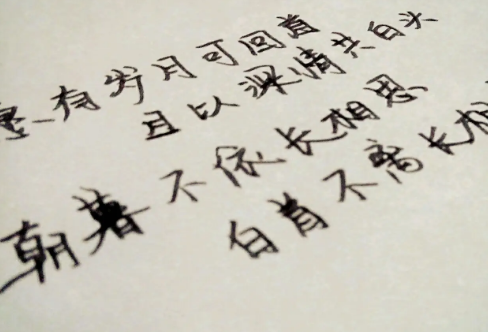 有岁月可回首
且以深情共白头
朝暮不依长相思
白首不离长